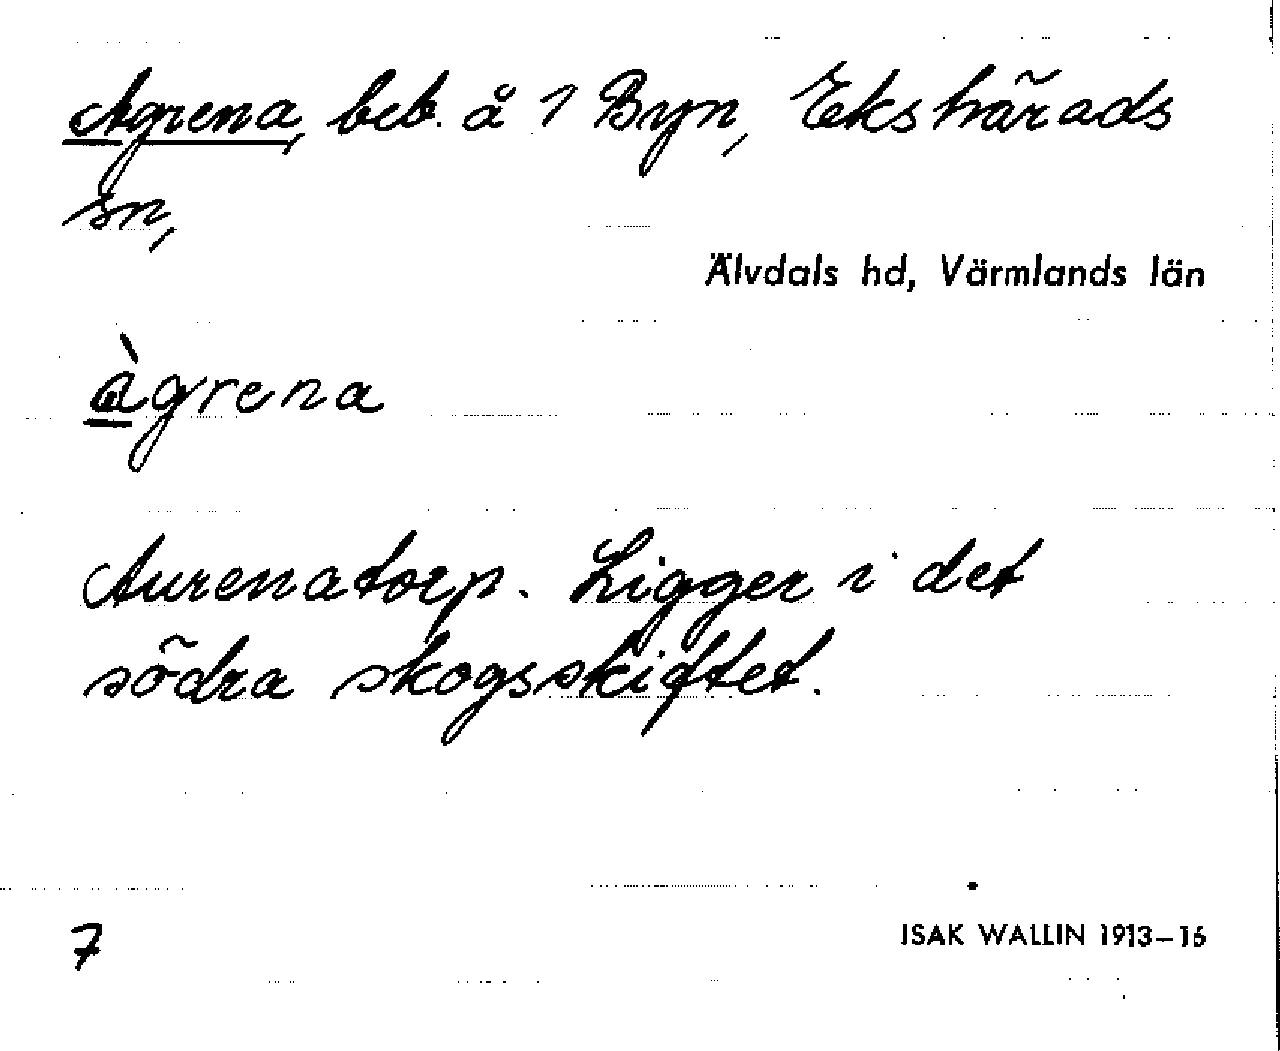 Agrena, beb. å 1 Byn, Ekshärads
sn,
Älvdals hd, Värmlands län
àgrena
Aurenatorp. Ligger i det
södra skogsskiftet.
7
ISAK WALLIN 1913–16